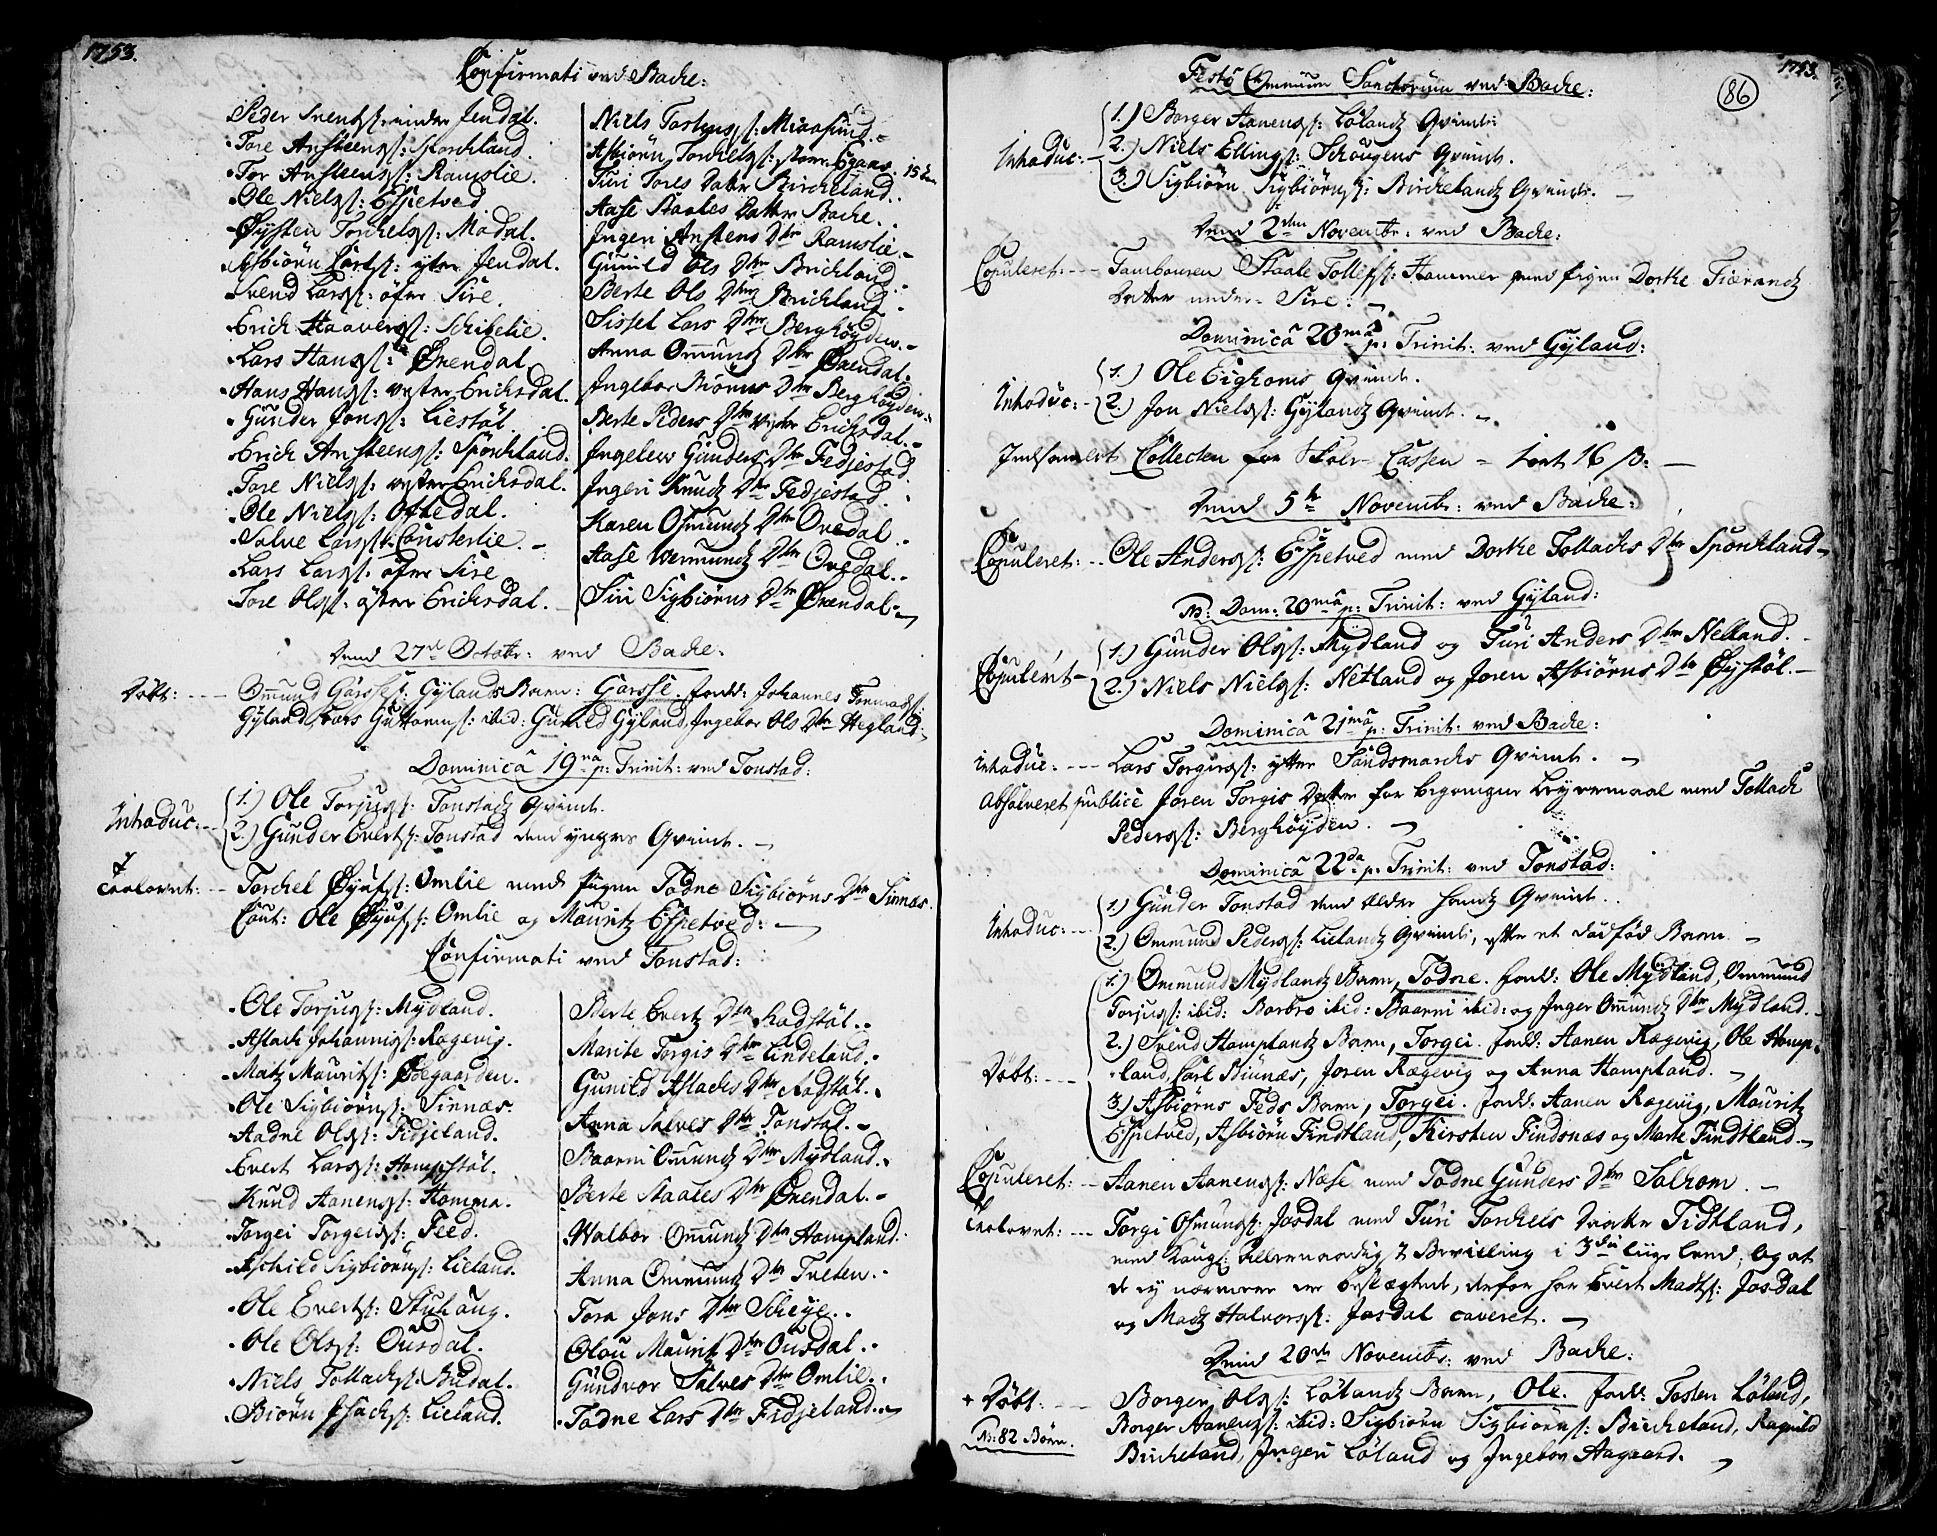 1753.
Confirmati ved Bache:
Peder Svends: Jendal.
Tore Ansteens: Sporchland.
Tor Ansteens: Ramslie.
Ole Niels: Espetved
Øysten Torchels: Mødal.
Asbiørn Carls: ytre Jendal.
Svend Lars: øfre Sire.
Erich Haavers: Schibelie.
Lars Hans: Ørendal.
Hans Hans: vester Erichsdal.
Gunder Jons: Liestøl.
Erich Ansteens: Sporchland.
Tore Niels: vester Erichsdal.
Ole Niels: Othedal.
Salve Lars: Lousterlie.
Lars Lars: øfre Sire
Tore Ols: øster Erichsdal.
Niels Tostens:
Asbiørn Torchels: Egaas. 15
Turi Tores Datter Bircheland.
Aase Staales Datter Bache.
Ingeri Anstens Dtr Ramslie.
Gunild Ols Dtr Brichland.
Berte Ols Dtr Brichland.
Sissel Lars Dtr Berghøyden.
Anna Ommundz Dtr Ørendal.
Ingebor Biørns Dtr Berghøyden.
Berte Peders Dtr vester Erichsdal.
Ingelew Gunders Dtr Fedjestad.
Ingeri Knudz Dtr Fedjestad.
Karen Osmundz Dtr Ovedal.
Aase Wermundz Dtr Ovedal.
Siri Sigbiørns Dtr Ørendal.
Dend 27de Octobr: ved Bache:
Døbt: Ommund Gørsses: Gylands Barn: Gørsse. fadd: Johannes Tormods:
Gyland, Lars Guttorms: ibid: Gunild Gyland, Ingebor Ols Dtr Hegland.
Dominica 19na p: Trinit: ved Tonstad:
Introduc: 1.) Ole Torjus: Tonstadz Qvinde.
2.) Gunder Everts: Tonstad den yngres Qvinde.
Trolovet: Torchel Øyufs: Omlie med Pigen Todne Sigbiørns Dtr Sinnæs.
Caut: Ole Øyufs: Omlie og Mauritz Espetved:
Confirmati ved Tonstad:
Ole Torjus: Mydland.
Aslach Johannis: Røgevig.
Matz Maurits: Ødegaarden.
Ole Sigbiørns: Sinnæs.
Aadne Ols: Fidjeland.
Evert Lars: Hompstøl.
Knud Aanens: Homma.
Torgei Torgeis: Feed.
Eschild Sigbiørns: Lieland.
Ole Everts: Stuhoug.
Ole Ols: Ousdal.
Niels Tollachs: Budal.
Biørn Isachs: Lieland.
Berte Evertz Dtr Rødstøl.
Marite Torgis Dtr Lindeland.
Gunild Aslachs Dtr Rødstøl.
Anna Salves Dtr Tonstad.
Baarni Omundz Dtr Mydland.
Berte Staales Dtr Ørendal.
Walbor Omundz Dtr Hompland.
Anna Ommundz Dtr Treten.
Tora Jons Dtr Scheye.
Olou Maurits Dtr Ousdal.
Gundvor Salves Dtr Omlie.
Todne Lars Dtr Fidjeland.
1753.
86
Festo Omnium Sanctorum ved Bache:
Introduc: 1.) Borger Aanens: Lølandz Qvinde.
2.) Niels Ellings: Schougens Qvinde.
3.) Sigbiørn Sigbiørns: Birchelandz Qvinde.
Dend 2den Novembr: ved Bache:
Copuleret: Tambouren Staale Tollefs: Hammer med Pigen Dorthe Tiærandz
Datter nedre Sire.
Dominica 20ma p: Trinit: ved Gyland:
Introduc: 1.) Ole Eighoms Qvinde.
2.) Jon Niels: Gylandz Qvinde.
Indsamlet Collecten for Cassen - 16 s:
Dend 5te Novembr: ved Bache:
Copuleret: Ole Anders: Espetved med Dorthe Tollachs Dtr Sporchland
NB: Dom: 20ma p: Trinit: ved Gyland:
Copulerit 1.) Gunder Ols: Mydland og Turi Anders Dtr Netland.
2.) Niels Niels: Netland og Joren Asbiørns Dtr Øystøl.
Dominica 21ma p: Trinit: ved Bache:
Introduc: Lars Torgers: ytter Sandsmarchs Qvinde.
Absolveret publicè Joren Torgis Datter for begangen Leyermaal med Tollach
Peders: Berghøyden.
Dominica 22da p: Trinit: ved Tonstad:
Introduc: 1.) Gunder Tonstad den ældres Qvinde.
2.) Ommund Peders: Lielandz Qvinde, efter et dødfød Barn.
1.) Ommund Mydlandz Barn, Todne. fadd: Ole Mydland, Ommund
Torjus: ibid: Barbro ibid: Baarni ibid: og Inger Omundz Dtr Mydland.
2.) Svend Homplandz Barn, Torgei. fadd: Aanen Røgevig, Ole Homp-
Døbt: land, Carl Biunæs, Joren Røgevig og Anna Hompland.
3.) Asbiørns Feds Barn, Torgei. fadd: Aanen Røgevig, Mauritz
Espetved, Asbiørn Findtland, Kirsten Findsnæs og Marte Findtland.
Copuleret: Aanen Aanens: Næse med Todne Gunders Dtr Solhom.
Trolovet: Torgi Osmunds: Josdal med Turi Torchels Datter Tidtland,
med Kongl: allernaadigst Bevilling i 3die liige leed; og at
de ey nærmere er beslægtet, derfor har Evert Mads: Josdal
og Madz Halvors: Josdal caveret.
Dend 20de Novembr: ved Bache:
+ Døbt: Borger Ols: Lølandz Barn, Ole. fadd: Tosten Løland,
NB: 82 Børn. Borger Aanens: ibid: Sigbiørn Sigbiørns: Bircheland, Ragnild
Bircheland, Ingeri Løland og Ingebor Aagaard.